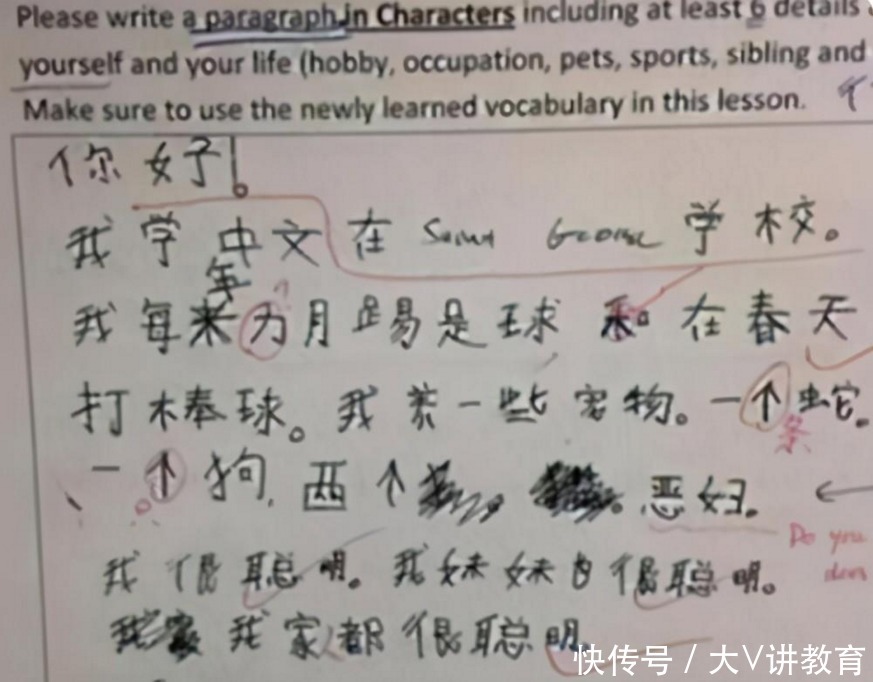 Please write a paragraph in Characters including at least 6 details
yourself and your life (hobby, occupation, pets, sports, sibling and
Make sure to use the newly learned vocabulary in this lesson. 个
你好!
我学中文在 学校。
年
我每来为月踢是球 。在春天
打棒球。我养一些宠物。一个蛇。
条
一个狗, 两个 。恶妇。
Do you
我很聪明。我妹妹也很聪明。
does
我家 我家人都很聪明。
快传号 / 大V讲教育